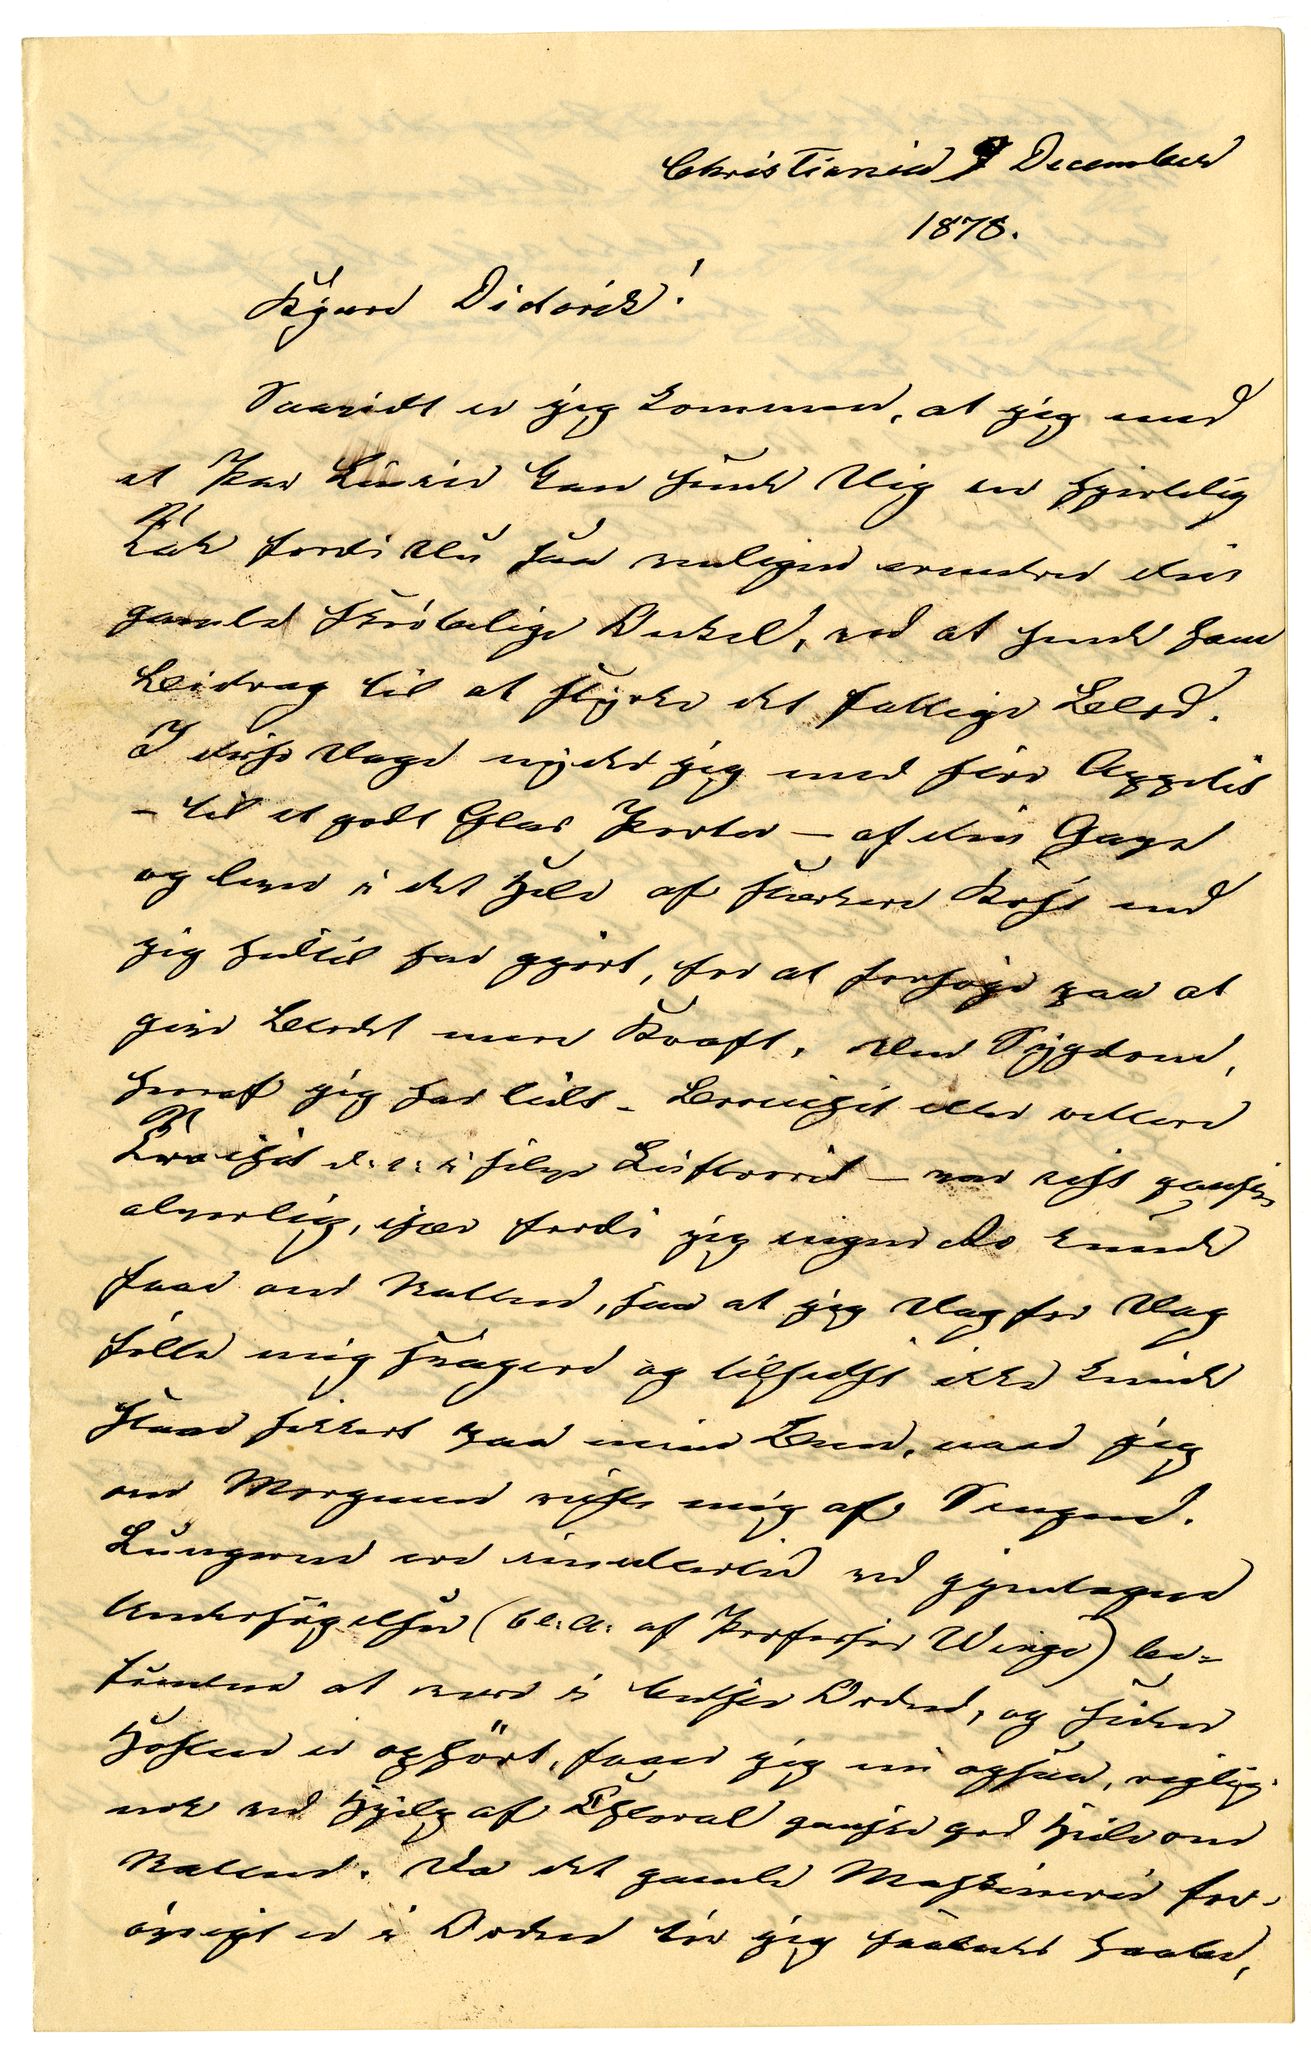 Christiania 9 December
1878.
Kjære Diderik!
Saavidt er jeg kommen, at jeg med
et Par Linier kan sende Dig en hjertelig
Tak fordi Du saa venligen erindrer din
gamle skröbelige Onkel, ved at sende ham
Bidrag til at styrke det fattige Blod.
I disse Dage nyder jeg med stor Appetit
– til et godt Glas Porter – af din Gave
og lever i det Hele af stærkere Kost end
jeg hidtil har gjört, for at forsöge paa at
give Blodet mere Kraft. Den Sygdom,
hvoraf jeg har lidt – Bronchit eller rettere
d: e: i fölge Luftveie – var vist ganske
alvorlig, især fordi jeg ingen Ro kunde
faae om Natten, saa at jeg Dag for Dag
fölte mig svagere og tilsidst ikke kunde
staae sikkert paa mine Been, naar jeg
om Morgenen reiste mig af Sengen.
Lungerne ere imidlertid ved gjentagne
Undersögelser (bl: A: af Professor Winge) be-
fundne at være i bedste Orden, og siden
Hosten er ophört, faaer jeg nu ogsaa, rigtig-
nok ved Hjelp af Chloral ganske god Hvile om
Natten. Da det gamle Maskineri for-
övrigt er i Orden tör jeg saaledes haabe,